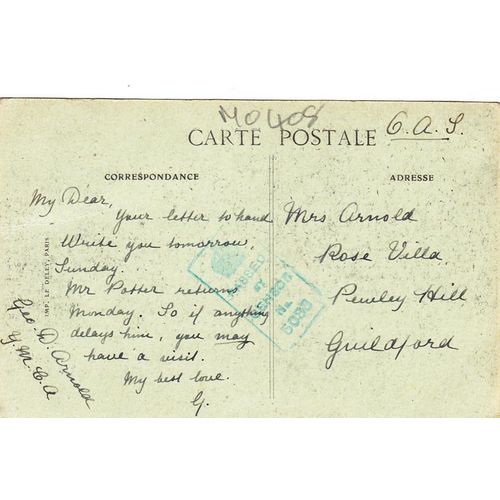 M0408
CARTE POSTALE
O.A.S.
CORRESPONDANCE
ADRESSE
My Dear,
Your letter to hand
Write you tomorrow,
Sunday.
Mr Potter returns
Monday. So if anything
delays him, you may
have a visit.
My best love.
G.
Geo. D. Arnold
Y.M.C.A
IMP. LE DELEY, PARIS
PASSED
BY
CENSOR
No
Mrs Arnold
Rose Villa
Pewley Hill
Guildford